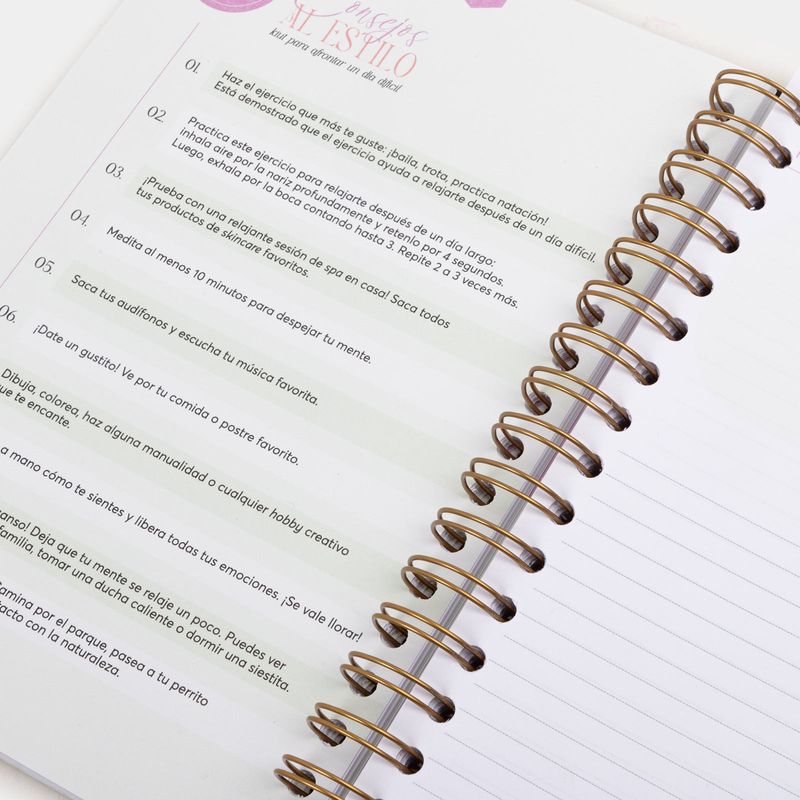 Consejos
AL ESTILO
ktut para afrontar un día difícil
01. Haz el ejercicio que más te guste: ¡baila, trota, practica natación!
Está demostrado que el ejercicio ayuda a relajarte después de un día difícil.
02. Practica este ejercicio para relajarte después de un día largo:
inhala aire por la nariz profundamente y retenlo por 4 segundos.
Luego, exhala por la boca contando hasta 3. Repite 2 a 3 veces más.
03. ¡Prueba con una relajante sesión de spa en casa! Saca todos
tus productos de skincare favoritos.
04. Medita al menos 10 minutos para despejar tu mente.
05. Saca tus audífonos y escucha tu música favorita.
06. ¡Date un gustito! Ve por tu comida o postre favorito.
Dibuja, colorea, haz alguna manualidad o cualquier hobby creativo
que te encante.
a mano cómo te sientes y libera todas tus emociones. ¡Se vale llorar!
Deja que tu mente se relaje un poco. Puedes ver
familia, tomar una ducha caliente o dormir una siestita.
Camina por el parque, pasea a tu perrito
con la naturaleza.